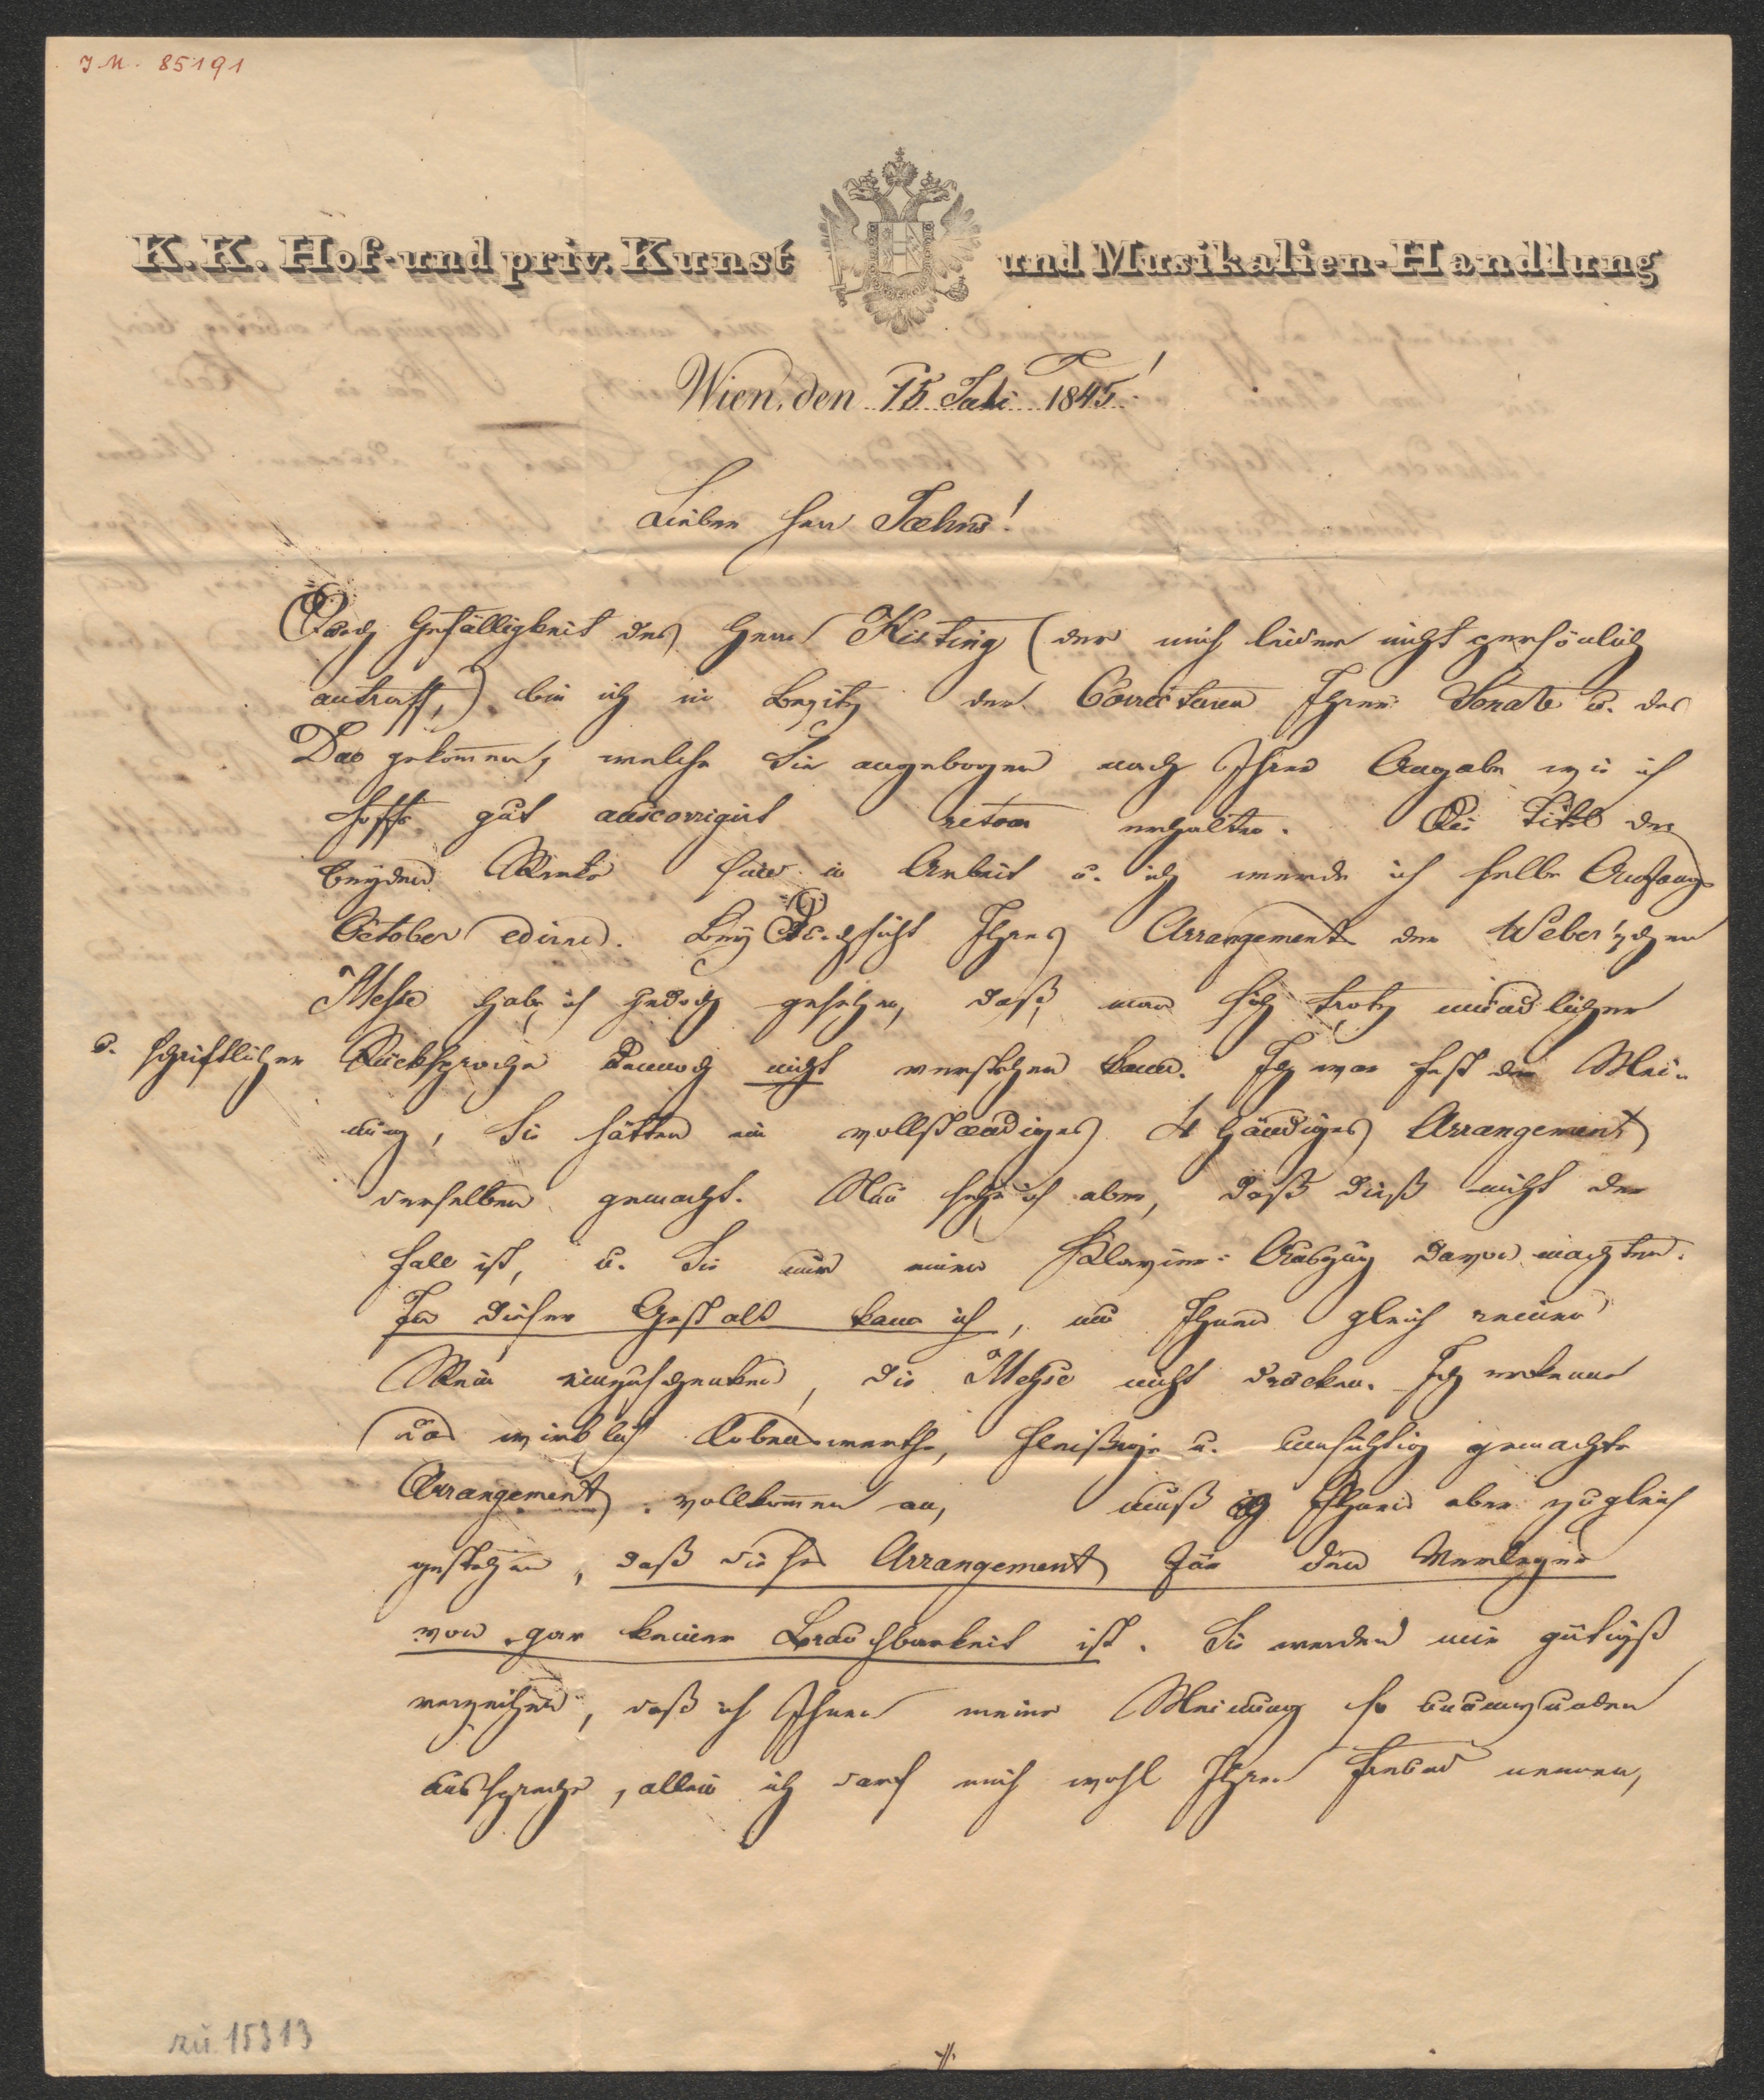 I.N. 85191
K.K. Hof- und priv. Kunst und Musikalien-Handlung
Wien, den 15 Juli 1845!
Lieber Herr Jaehns!
Durch Gefälligkeit des Herrn Kisting (der mich leider nicht persönlich
antraff,) bin ich in Besitz der Correcturen Ihrer Sonate u. des
Duo gekom̅en, welche Sie angebogen nach Ihrer Angabe wie ich
hoffe gut auscorrigirt retour erhalten. Die Titel der
beyden Werke sind in Arbeit u. ich werde ich selbe Anfangs
October ediren. Bey Durchsicht Ihres Arrangements der Weber'schen
Messe habe ich jedoch gesehen, daß man sich trotz mündlicher
u. schriftlicher Rücksprache dennoch nicht verstehen kann. Ich war fest der Mei-
nung, Sie hätten ein vollstaendiges 4 händiges Arrangement
derselben gemacht. Nun sehe ich aber, daß dieß nicht der
Fall ist, u. Sie nur einen Klavier-Auszug davon machten.
In dieser Gestalt kann ich, um Ihnen gleich reinen
Wein einzuschenken, die Messe nicht drucken. Ich erkenne
das wirklich lobenswerthe, fleißige u. umsichtig gemachte
Arrangement vollkom̅en an, muß ich Ihnen aber zugleich
gestehen, daß dieses Arrangement für den Verleger
von gar keiner Brauchbarkeit ist. Sie werden mir gütigst
verzeihen, daß ich Ihnen meine Meinung so unumwunden
ausspreche, allein ich darf mich wohl Ihren Freund nennen,
zu 15313
·/.